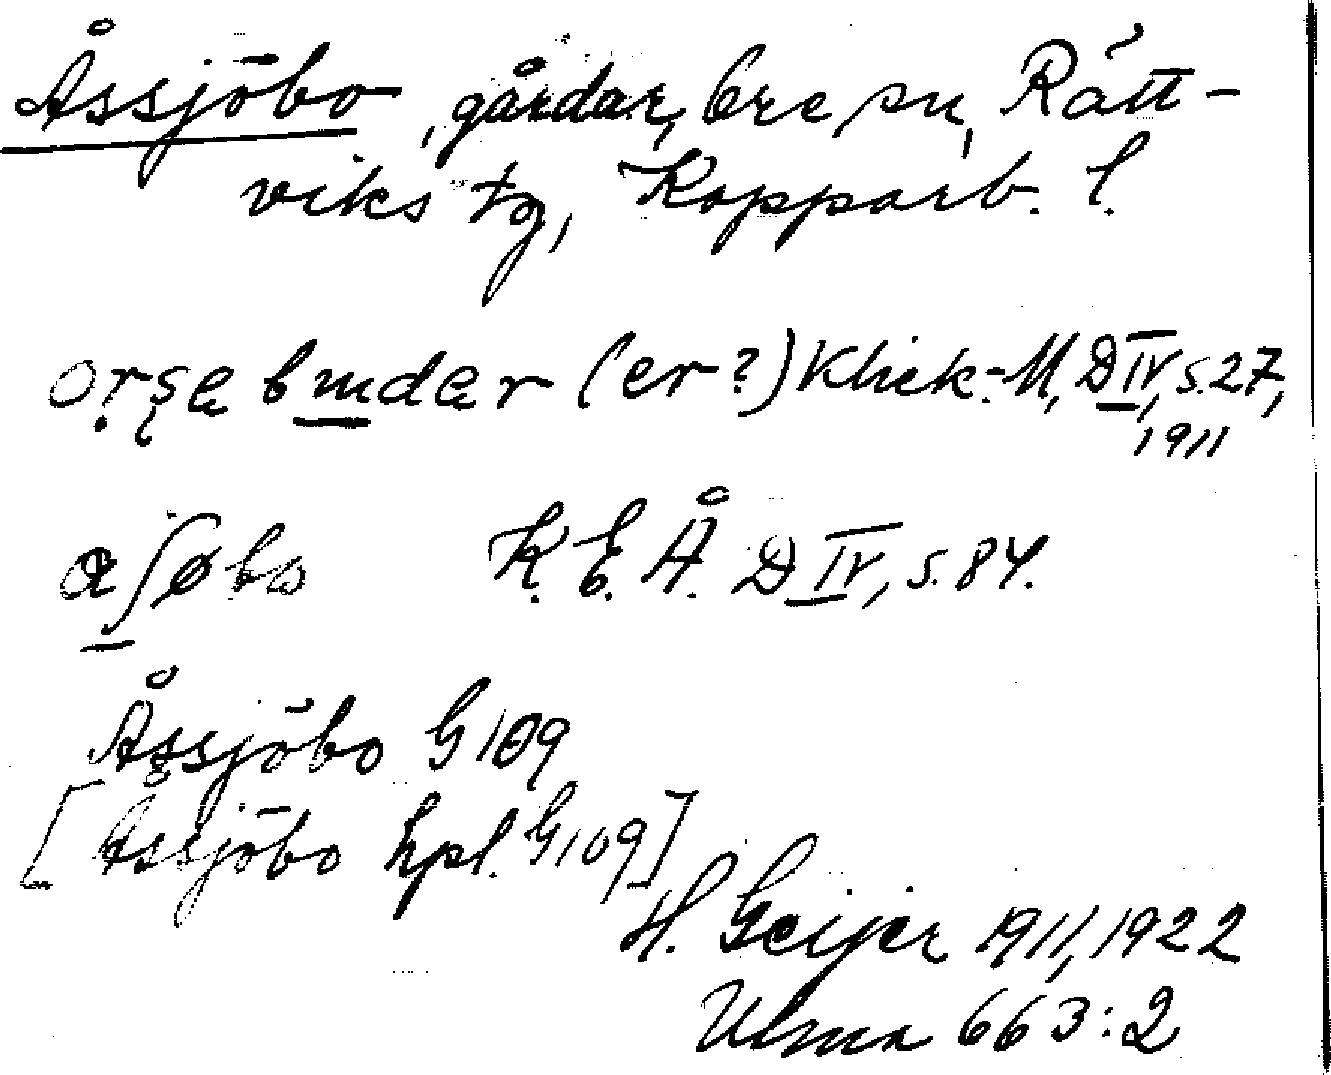 Åssjöbo, gårdar, Ore sn, Rätt-
viks tg, Kopparb. l.
(er?) Klick.-M, D IV, s. 27,
1911
K. E. Å. D IV, s. 84.
Åssjöbo G 109
[Åssjöbo hpl. G 109]
H. Geijer 1911, 1922
Ulma 663:2